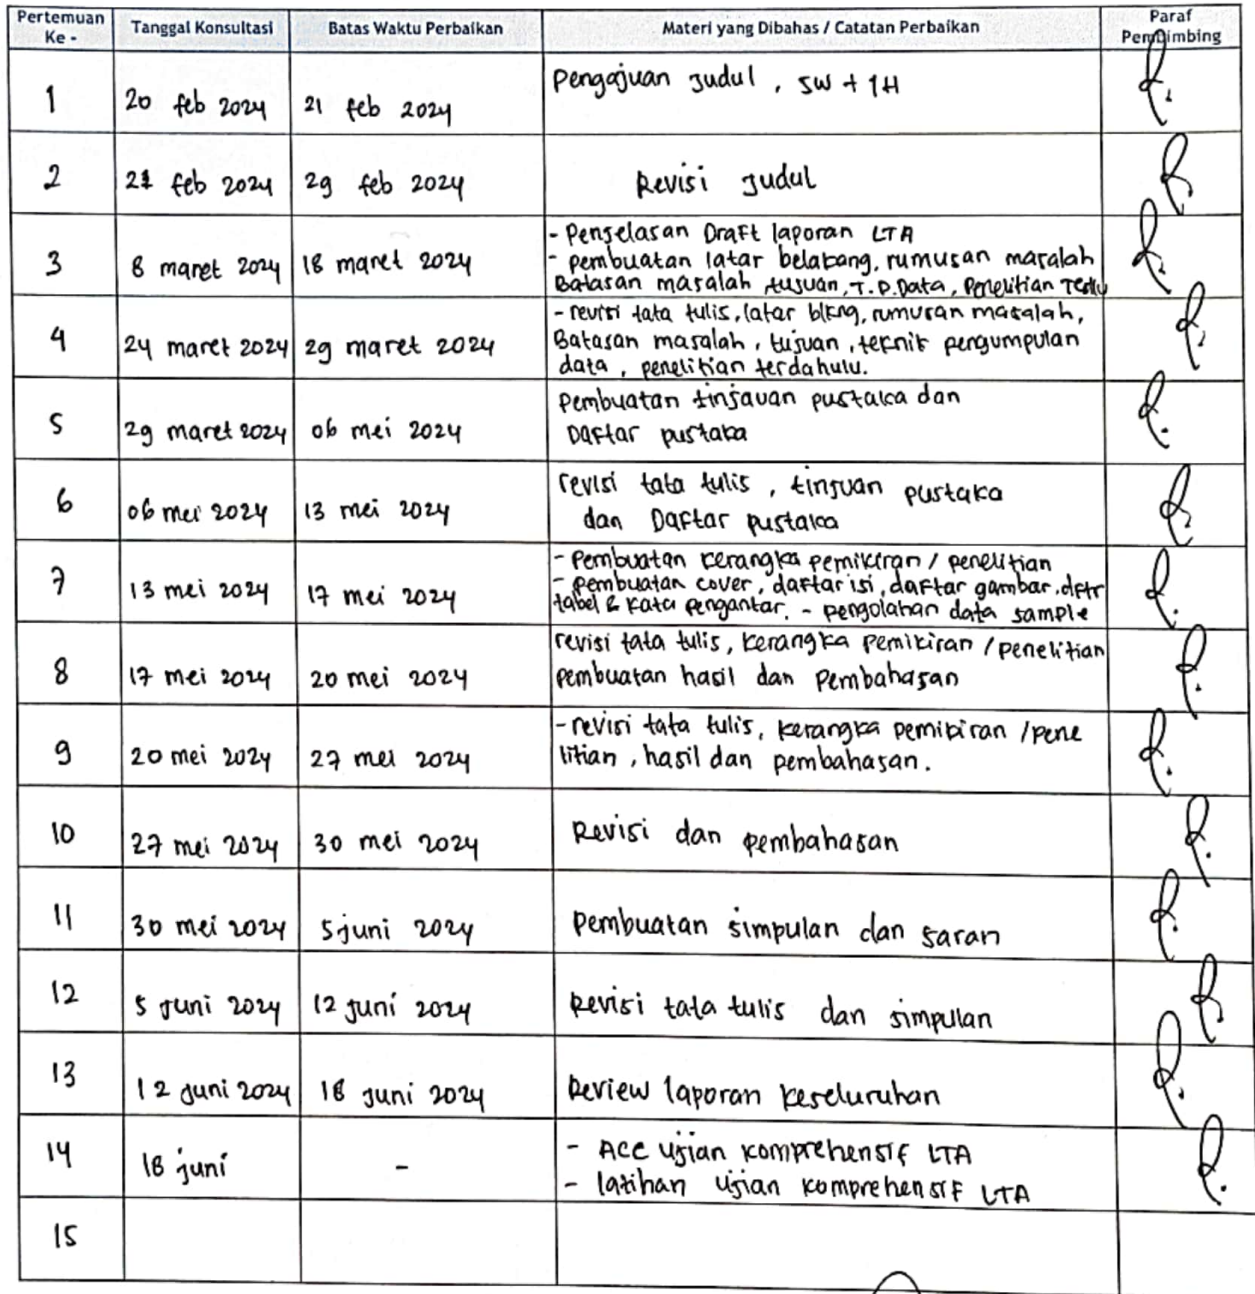 Pertemuan Ke -
Tanggal Konsultasi
Batas Waktu Perbaikan
Materi yang Dibahas / Catatan Perbaikan
Paraf Pembimbing
1
20 feb 2024
21 feb 2024
Pengajuan judul, 5W + 1H
2
21 feb 2024
29 feb 2024
Revisi judul
3
8 maret 2024
18 maret 2024
- Penjelasan Draft laporan LTA
- pembuatan latar belakang, rumusan masalah
Batasan masalah tujuan, T.P.Data, Penelitian
4
24 maret 2024
29 maret 2024
- revisi tata tulis, latar blkng, rumusan masalah,
Batasan masalah, tujuan, teknik pengumpulan
data, penelitian terdahulu.
5
29 maret 2024
06 mei 2024
Pembuatan tinjauan pustaka dan
Daftar pustaka
6
06 mei 2024
13 mei 2024
revisi tata tulis, tinjuan pustaka
dan Daftar pustaka
7
13 mei 2024
17 mei 2024
- Pembuatan kerangka pemikiran / penelitian
- pembuatan cover, daftar isi, daftar gambar, dftr
tabel & kata pengantar. - pengolahan data sample
8
17 mei 2024
20 mei 2024
revisi tata tulis, kerangka pemikiran / penelitian
pembuatan hasil dan Pembahasan
9
20 mei 2024
27 mei 2024
- revisi tata tulis, kerangka pemikiran / pene
litian, hasil dan pembahasan.
10
27 mei 2024
30 mei 2024
Revisi dan pembahasan
11
30 mei 2024
5 juni 2024
Pembuatan simpulan dan saran
12
5 juni 2024
12 juni 2024
Revisi tata tulis dan simpulan
13
12 juni 2024
18 juni 2024
Review laporan keseluruhan
14
18 juni
-
- Acc ujian komprehensif LTA
- latihan ujian komprehensif LTA
15